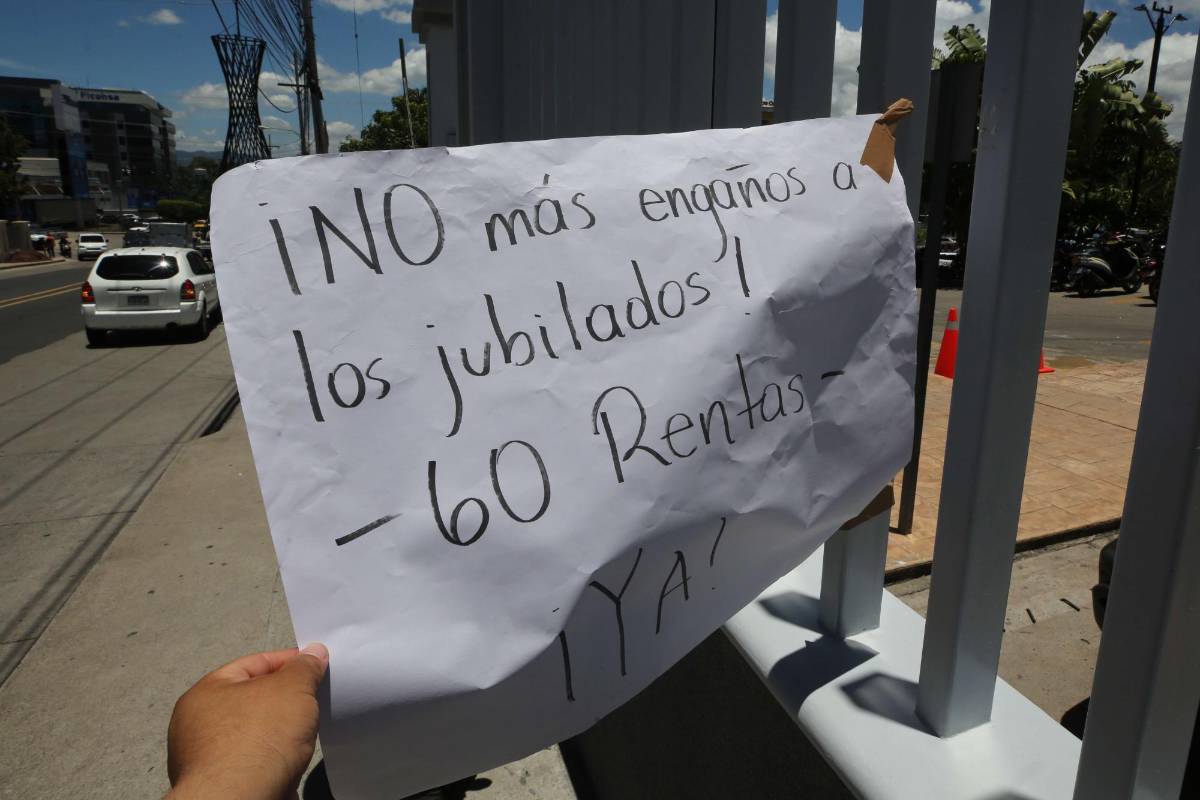 Ficohsa
¡NO más engaños a
los jubilados!
-60 Rentas-
¡YA!